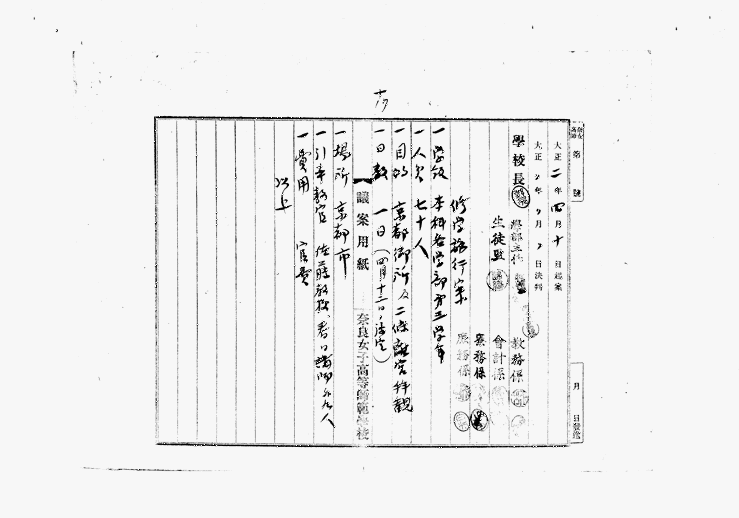 十九
第　號
大正二年四月十日起案
大正　年　月　日決判
月　日發送
學校長
教務係
生徒監
會計係
庶務係
修学旅行案
一 学級　本科各学部第三学年
一 人員　七十人
一 目的　京都御所及二條離宮拜観
一 日数　一日（四月十三日ノ予定）
議案用紙
奈良女子高等師範學校
一 場所　京都市
一 引率教官　佐藤教授、春口講師外九人
一 費用　官費
以上